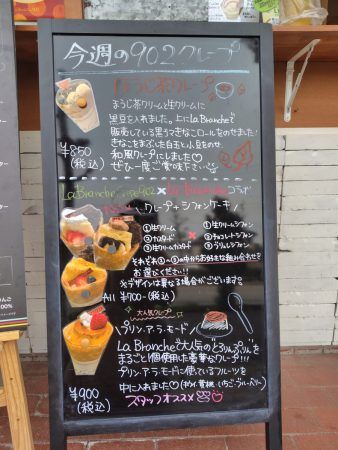 今週の902クレープ
ほうじ茶クレープ
ほうじ茶クリームと生クリームに
黒豆を入れました。上にLa Brancheで
販売している黒ごまきなこロールをのせました！
きなこをまぶした白玉と小豆をのせ、
和風クレープにしました♡
ぜひ一度ご賞味下さい
¥850
(税込)
La Branche cafe902×La Brancheコラボ
クレープ+シフォンケーキ♪
①生クリーム
②カスタード
③生クリームカスタード
×
①生クリームシフォン
②チョコレートシフォン
③
それぞれ①~③の中からお好きな組み合わせを
お選びください!!
※デザインは異なる場合がございます。
All ¥700-(税込)
大人気クレープ
プリン・ア・ラ・モード♪
La Brancheで大人気の"とろりんぷりん"を
まるごと1個使用した豪華なクレープ!!!
プリン・ア・ラ・モードに使っているフルーツを
中に入れました♡(キウイ・黄桃・いちご・ブルーベリー)
スタッフオススメ
¥900
(税込)
りんご
100%